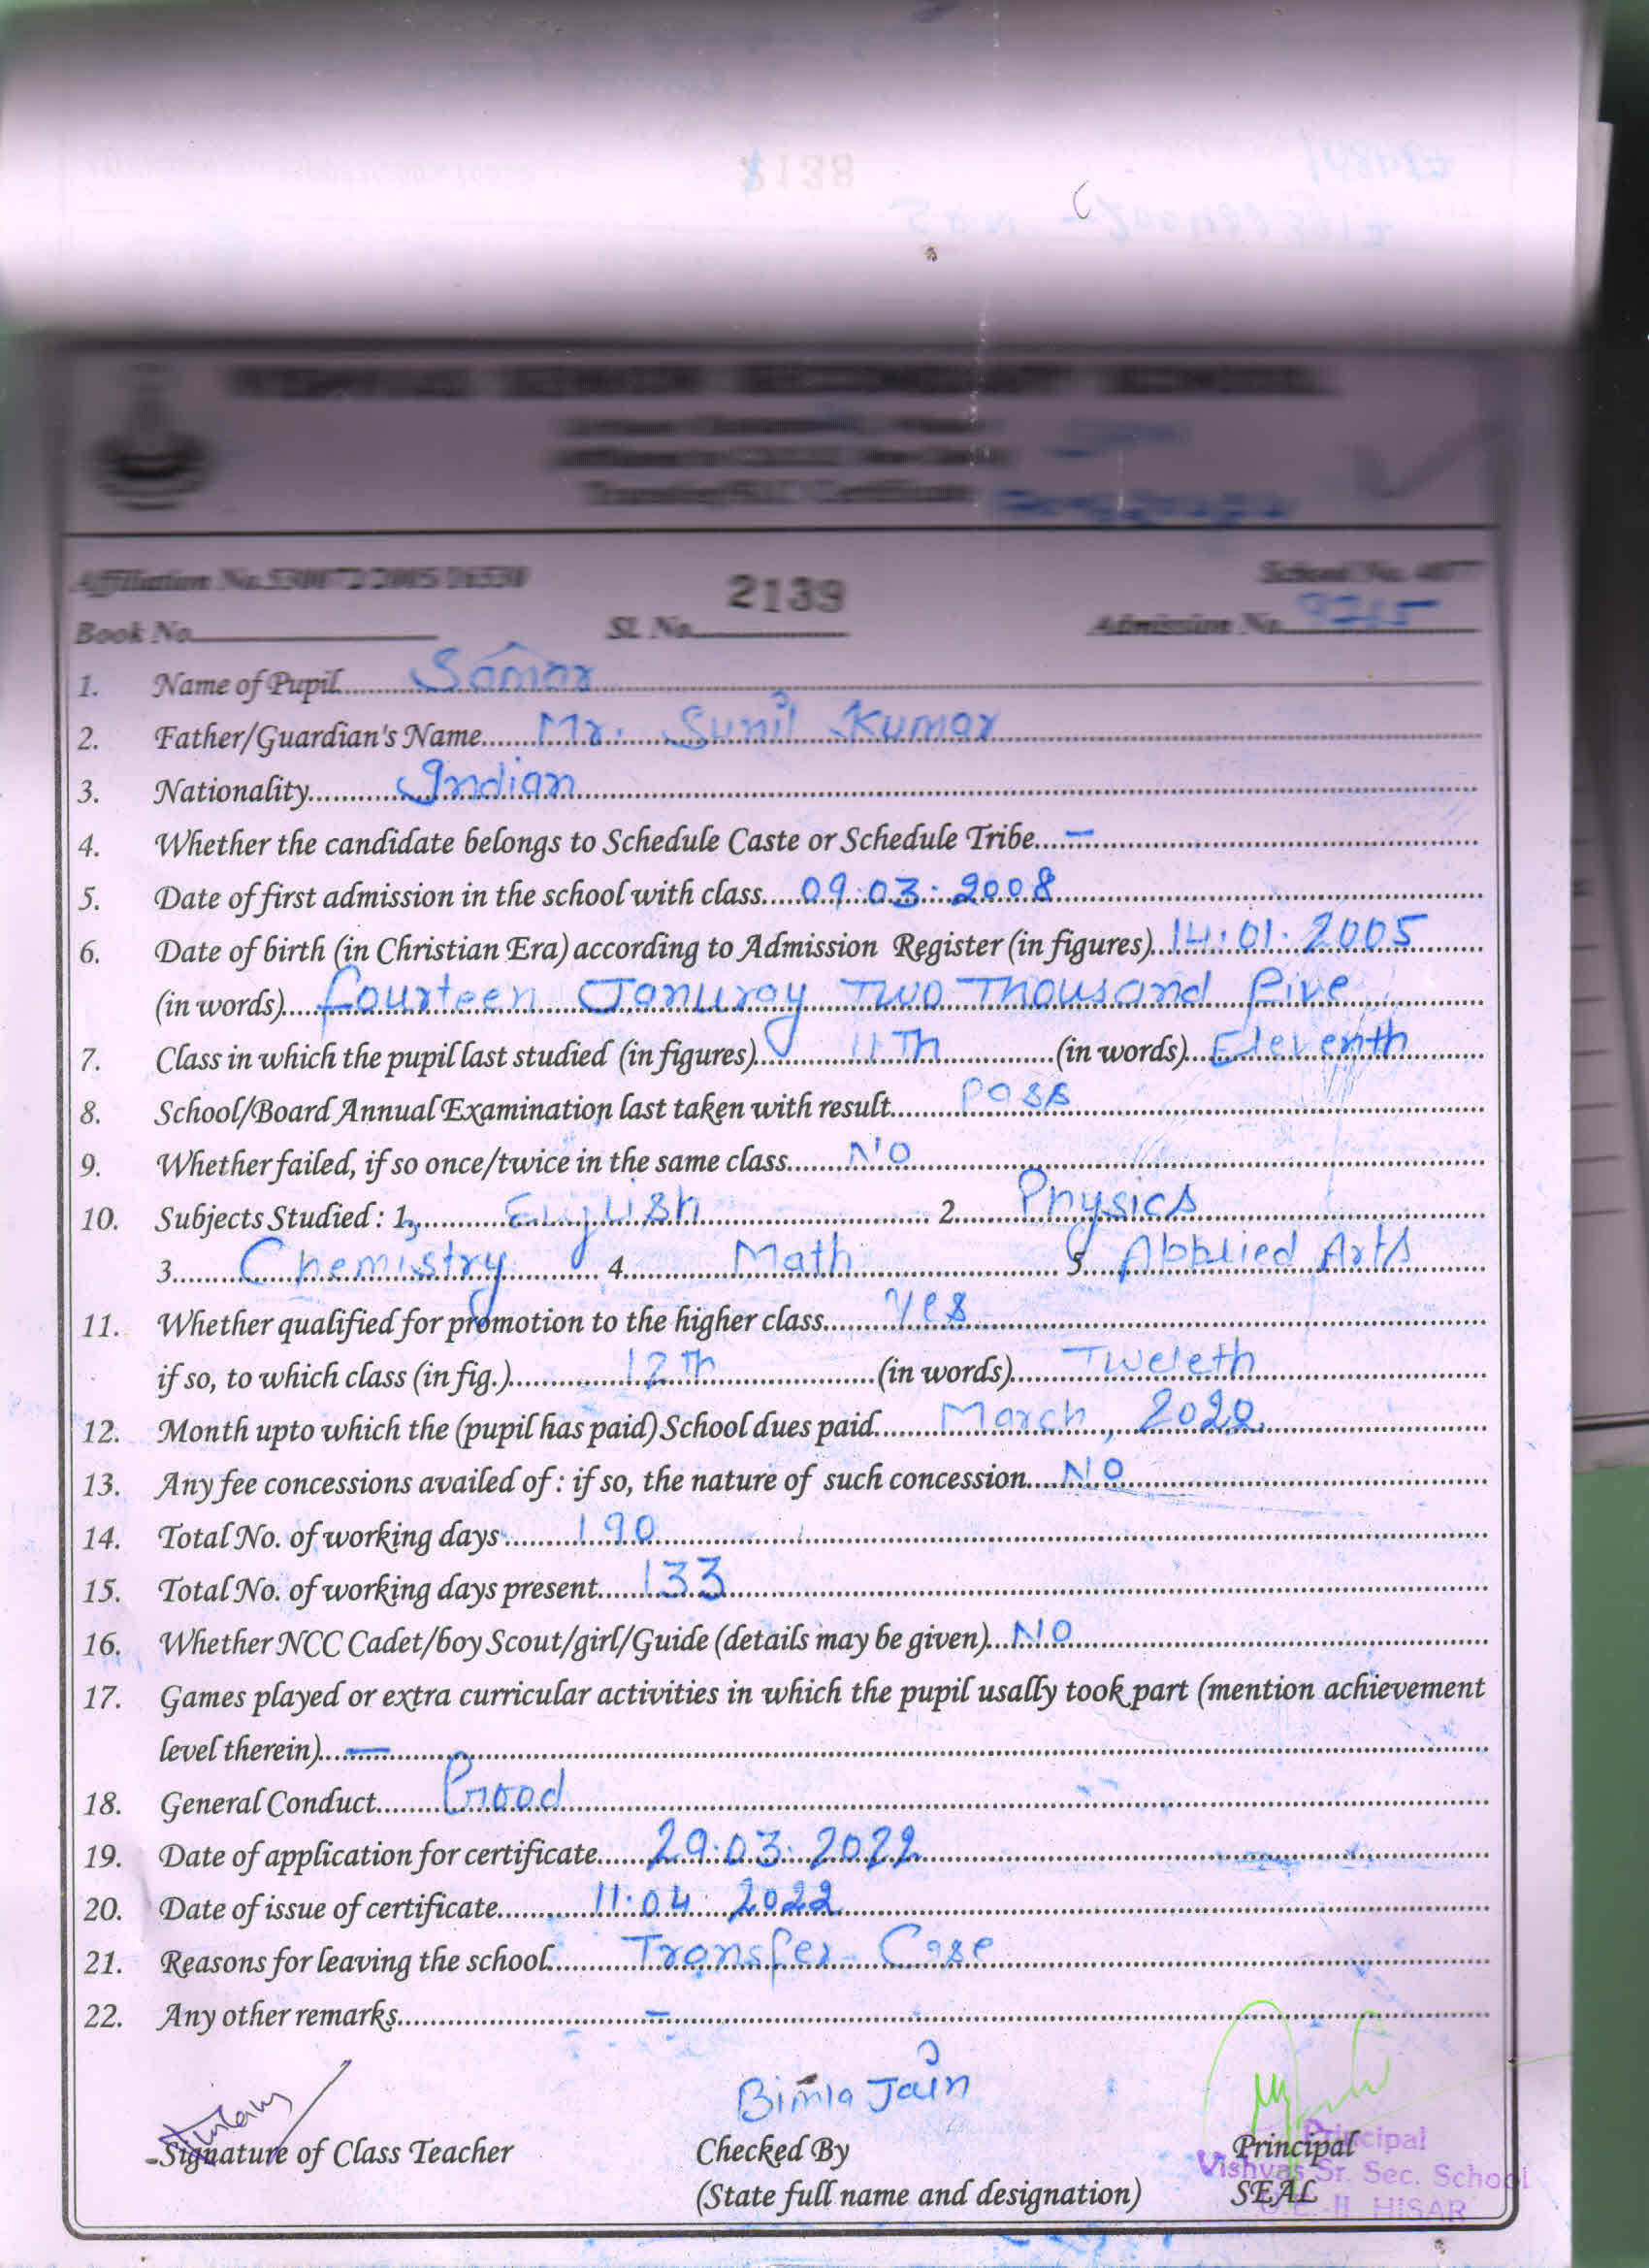 SENIOR SECONDARY SCHOOL
Transfer/SLC Certificate
Affiliation No. School No.
2139
Book No. Sl. No. Admission No.
1. Name of Pupil Samar
2. Father/Guardian's Name Mr. Sunil Kumar
3. Nationality Indian
4. Whether the candidate belongs to Schedule Caste or Schedule Tribe –
5. Date of first admission in the school with class 09.03.2008
6. Date of birth (in Christian Era) according to Admission Register (in figures) 14.01.2005
(in words) fourteen Januray Two Thousand Five
7. Class in which the pupil last studied (in figures) 11Th (in words) Eleventh
8. School/Board Annual Examination last taken with result Pass
9. Whether failed, if so once/twice in the same class NO
10. Subjects Studied : 1, English 2. Physics
3. Chemistry 4. Math 5. Applied Arts
11. Whether qualified for promotion to the higher class yes
if so, to which class (in fig.) 12Th (in words) Tweleth
12. Month upto which the (pupil has paid) School dues paid March, 2022
13. Any fee concessions availed of : if so, the nature of such concession NO
14. Total No. of working days 190
15. Total No. of working days present 133
16. Whether NCC Cadet/boy Scout/girl/Guide (details may be given) NO
17. Games played or extra curricular activities in which the pupil usally took part (mention achievement
level therein) —
18. General Conduct Good
19. Date of application for certificate 29.03.2022
20. Date of issue of certificate 11.04.2022
21. Reasons for leaving the school Transfer Case
22. Any other remarks –
Bimla Jain
Signature of Class Teacher Checked By Principal
(State full name and designation) SEAL
Principal
Vishvas Sr. Sec. School
HISAR